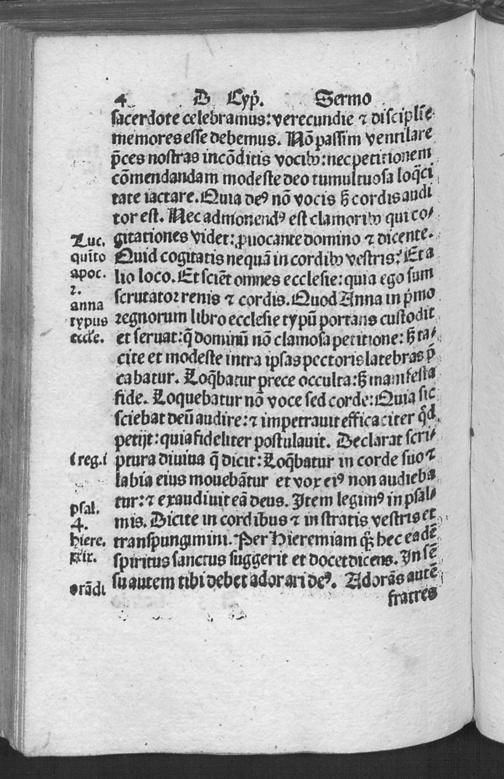 4 D Cyp̄. Sermo
sacerdote celebramus: verecundie ⁊ disciplīe
memores esse debemus. Nō passim ventilare
p̄ces nostras incōditis vocibꝫ: nec petitionem
cōmendandam modeste deo tumultuosa loq̄ci
tate iactare. Quia deꝰ nō vocis sꝫ cordis audi
tor est. Nec admonendꝰ est clamoribꝫ qui co-
gitationes videt: ꝓuocante domino ⁊ dicente.
Quid cogitatis nequā in cordibꝫ vestris? Et a
lio loco. Et sciēt omnes ecclesie: quia ego sum
scrutator renis ⁊ cordis. Quod Anna in p̄mo
regnorum libro ecclesie typū portans custodit
et seruat: q̄ dominū nō clamosa petitione: sꝫ ta-
cite et modeste intra ipsas pectoris latebras p̄
cabatur. Loq̄batur prece occulta: sꝫ manifesta
fide. Loquebatur nō voce sed corde: Quia sic
sciebat deū audire: ⁊ impetrauit efficaciter q̄d
petijt: quia fideliter postulauit. Declarat scri-
ptura diuina q̄ dicit: Loq̄batur in corde suo ⁊
labia eius mouebātur et vox eiꝰ non audieba
tur: ⁊ exaudiuit eā deus. Item legimꝰ in psal-
mis. Dicite in cordibus ⁊ in stratis vestris et
transpungimini. Per Hieremiam qꝫ hec eadē
spiritus sanctus suggerit et docet dicens. In sē
su autem tibi debet adorari deꝰ. Adorās autē
fratres
Luc.
quīto
apoc.
2.
anna
typus
eccle.
i reg.i
psal.
4.
hiere.
orādi